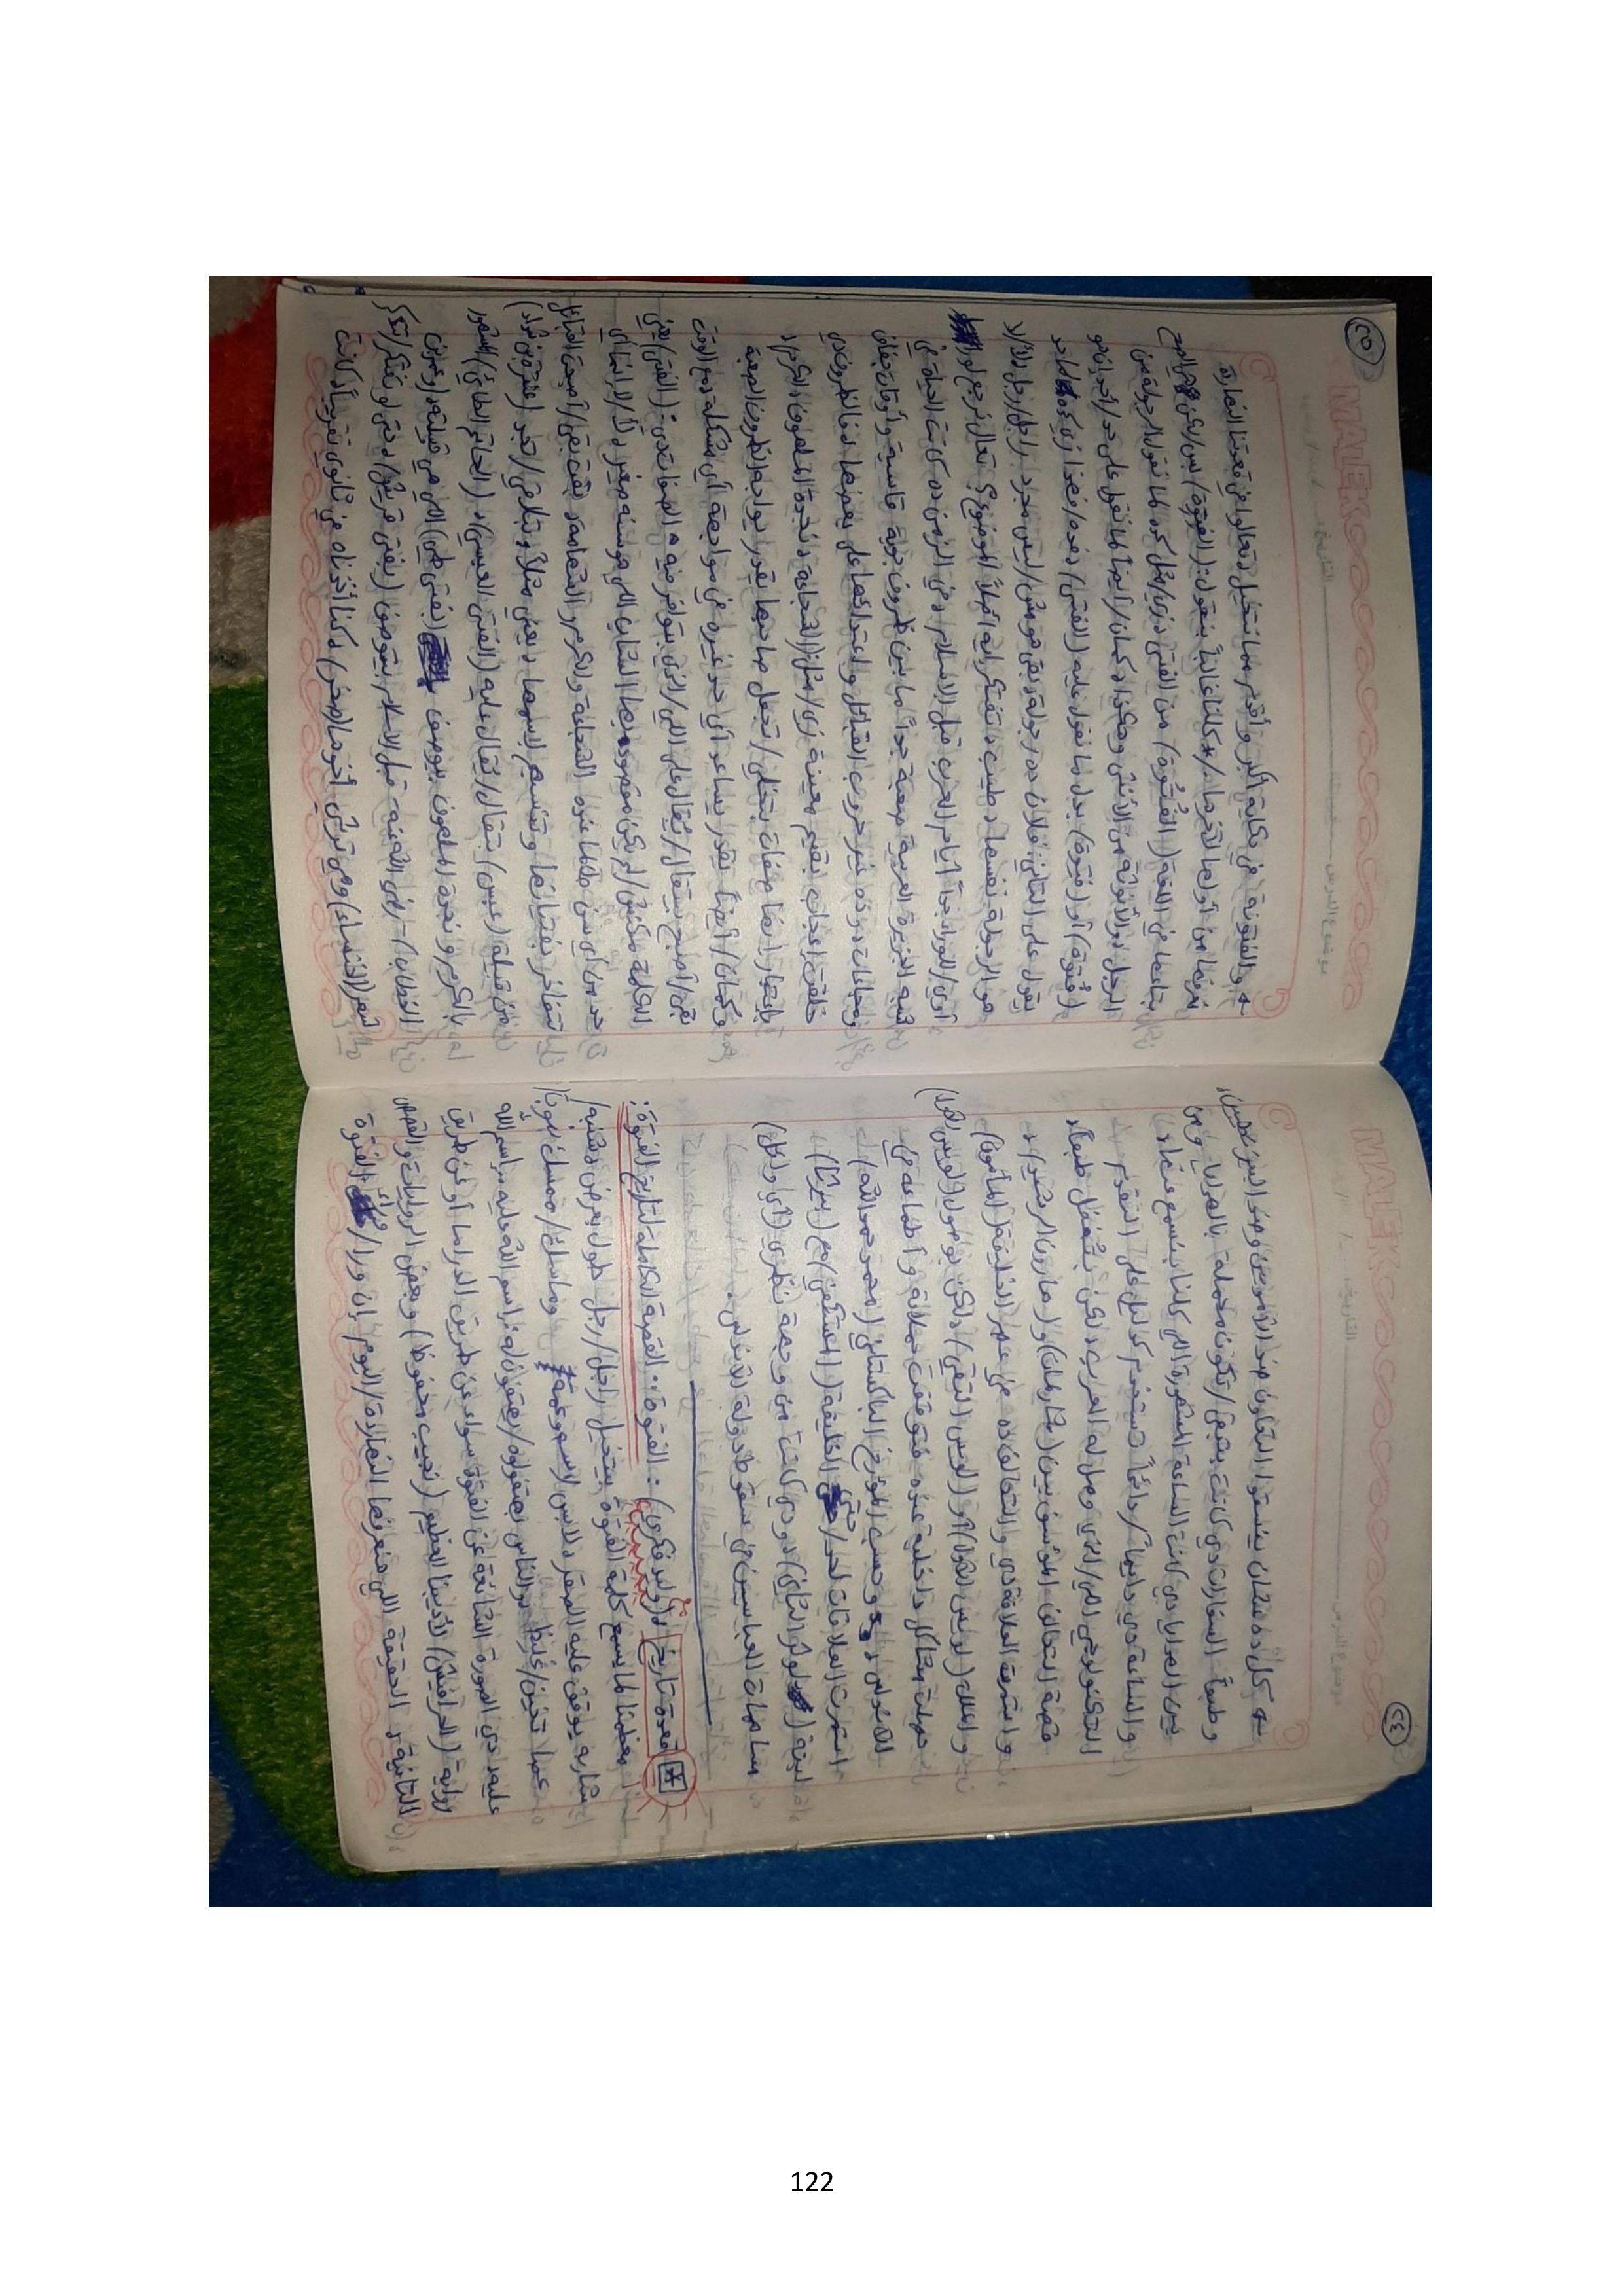 MALEK
التاريخ
موضوع الدرس
٢٤
كل ده عشان ينسقوا التعاون ضد الأمويين وضد البيزنطيين،
وطبعاً السفارات دي كانت بتبقى/تكون محملة بالهدايا ومن
بين الهدايا دي كانت الساعة المشهورة اللي كلنا بنسمع عنها،
والساعة دي دايماً/دائماً تستخدم كدليل على التقدم
التكنولوجي اللي/الذي وصل له العرب، لكن بتفضل طبعاً
قصة التحالف المؤسس بين (شارلمان) و (هارون الرشيد)،
واستمرت العلاقة دي والتحالف ده في عهد الخليفة (المأمون)
والملك (لويس الأول)/أو (لويس التقي)/، لكن بوصول (لويس
حملة مشاكل داخلية عنده فتوقفت حملاته وأطماعه في
الأندلس، وحسب المؤرخ الباكستاني (محمد حميد الله)
استمرت العلاقات لحد/حتى الخليفة (المستكفي) مع (بيرثا)
لبنة (لوثر الثاني)، ودي كانت من وجهة نظري (أي ولكل)
مساهمات العباسيين في سقوط دولة الأندلس.
* قعدة تاريخ (وليد فكري) : الفتوة: القصة الكاملة لتاريخ الفتوة:
معظمنا لما يسمع كلمة الفتوة بيتخيل راجل/رجل طول بعرض وشنبه/
شاربه يوقف عليه الصقر، لابس لاسه وعمة وماسك/ممسك نبوت/
عصا تخين/غليظ، والناس بيقولوله/يقولون له: اسم الله عليه، اسم الله
عليه، دي الصورة الشائعة عن الفتوة سواء عن طريق الدراما أو عن طريق
رواية (الحرافيش) لأديبنا العظيم (نجيب محفوظ) وبعض الروايات والقصص
التانية، الحقيقة اللي هنعرفها النهاردة/اليوم إن ورا/وراء الفتوة
MALEK
التاريخ
موضوع الدرس
٢٥
والفتونة في حكاية أكبر وأقدم مما نتخيل، تعالوا في قعدتنا النهاردة
نعرفها من أولها لآخرها، كلنا غالباً بنقول: (الفتوة)/بس/لكن الصح
بتاعها في اللغة (الفُتُوة) من الفتى، زي/مثل كده لما نقول الرجولة من
الرجل، والأنوثة من الأنثى وهكذا، كمان/أيضاً لما نقول على حد/أحد إنه
(فتوة) أو (فتوة) بدل ما نقول عليه (الفتى)، فده/فهذا زي كده لما حد
يقول على التاني: فلان ده رجولة، يبقى هو مش/ليس مجرد راجل/رجل، لأ/لا
هو الرجولة نفسها، طيب، تفتكر إيه أصلاً الموضوع؟ تعالى نرجع لورا
أوي/للوراء جداً أيام العرب قبل الإسلام، في الزمن ده كانت الحياة في
شبه الجزيرة العربية صعبة جداً ما بين ظروف جوية قاسية وأوقات جفاف
ومجاعات وده غير حروب القبائل واعتدائها على بعضها، فالظروف دي
خلقت إعجاب بقيم معينة زي/مثل: الشجاعة، نجدة الملهوف، الكرم،
باعتبار إنها صفات بتخلي/تجعل صاحبها يقدر يواجه الظروف الصعبة
وكمان/أيضاً يقدر يساعد أي حد غيره في مواجهة أي مشكلة، ومع الوقت
بقى/أصبح بيتقال/يُقال على اللي/الذي بيتوافر فيه الصفات دي: (الفتى)/يعني
الكلمة مكنش/لم يكن مقصود بيها الشاب اللي هو سنه صغير، لأ/لا، إنما أي
حد من أي سن طالما عنده الشجاعة والكرم والشهامة، بقت بقى/أصبحت القبائل
تتفاخر بفتيانها وتتسمى باسمها، يعني مثلاً، بتلاقي/تجد (عنترة بن شداد)
من قبيلة (عبس) بيتقال/يُقال عليه (الفتى العبسي)، (الحاتم الطائي) المشهور
بالكرم ونجدة الملهوف بيوصف (بفتى طي) اللي هي قبيلته، و(عمر بن
الخطاب) - رضي الله عنه - قبل الإسلام بيتوصف (بفتى قريش)، حتى لو نفتكر/نتذكر
شعر (الخنساء) وهي ترثي أخوها (صخر)، كنا أخدناه في ثانوي تقريباً، كانت
122